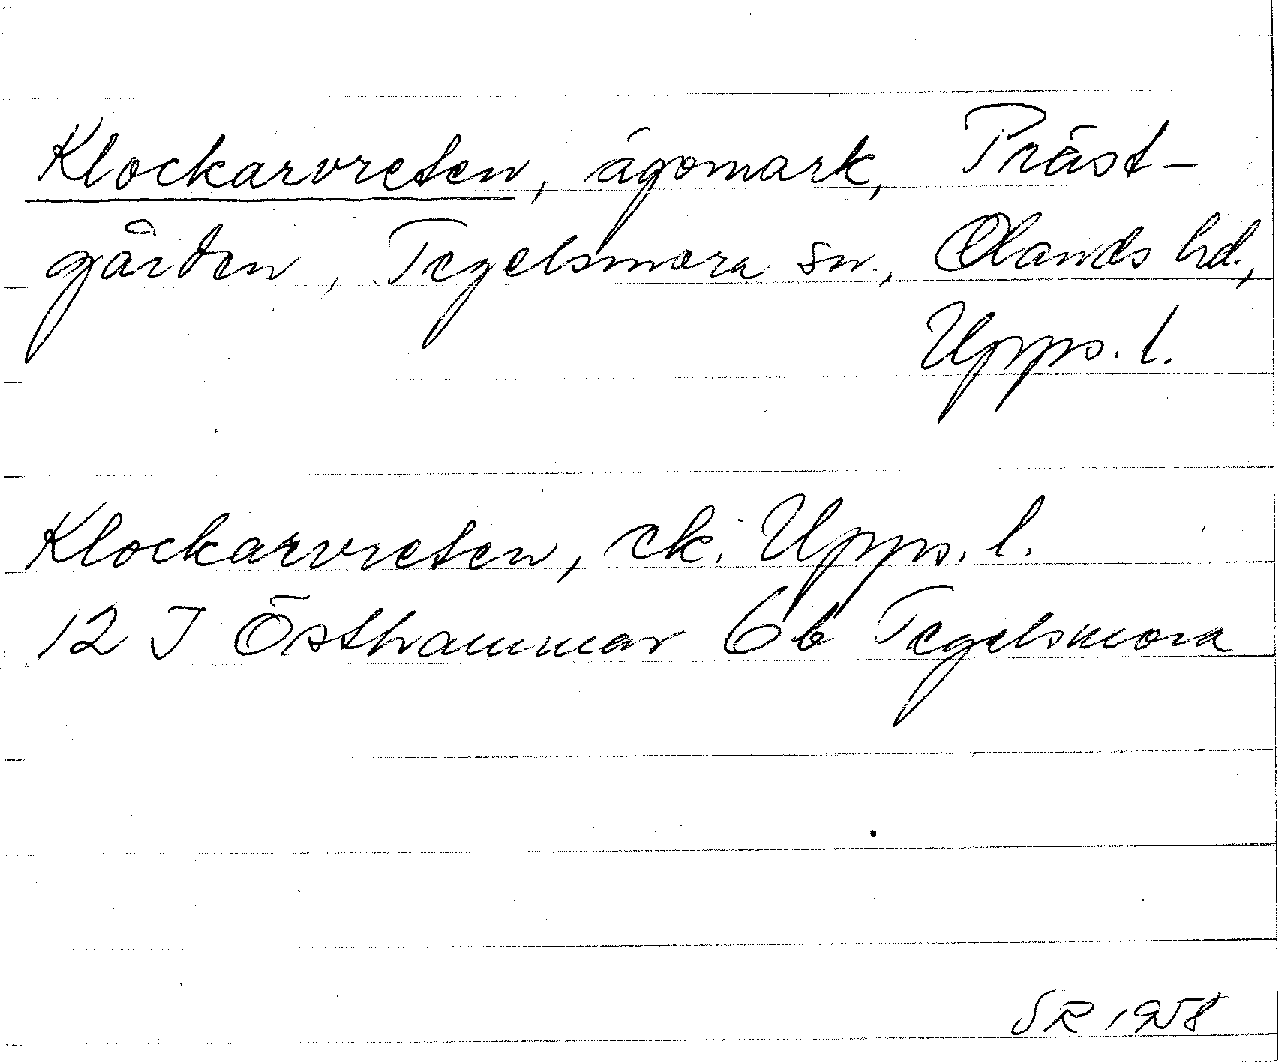 Klockarvreten, ägomark, Präst-
gården, Tegelsmora sn., Olands hd.,
Upps. l.
Klockarvreten, ek. Upps. l.
12 I Östhammar 6b Tegelsmora
SR 1958